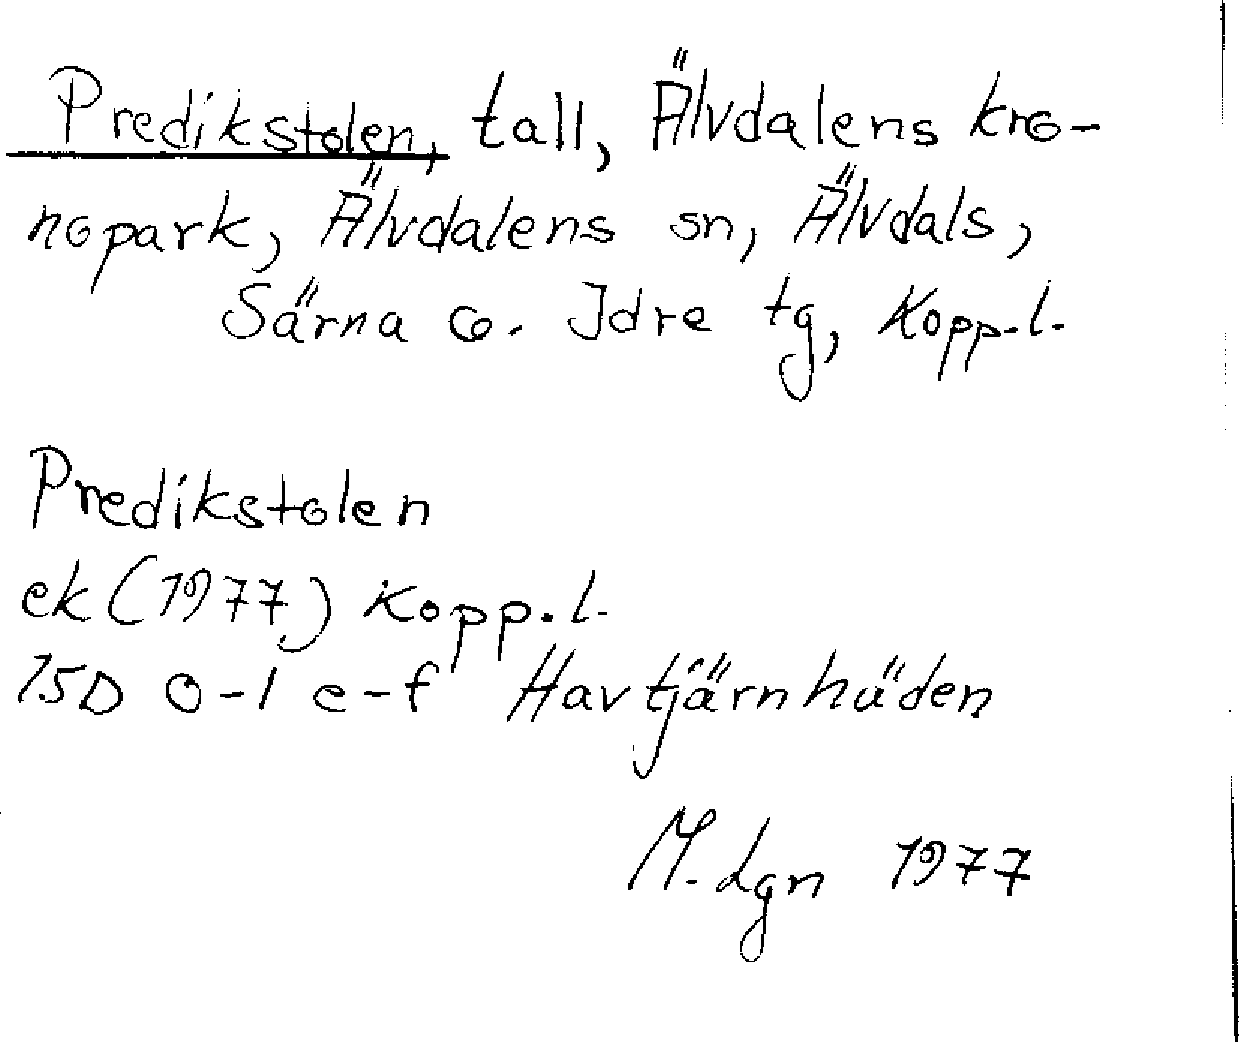 Predikstolen, tall, Älvdalens kro-
nopark, Älvdalens sn, Älvdals,
Särna o. Idre tg, Kopp.l.
Predikstolen
ek (1977) Kopp.l.
15D 0-1 e-f Havtjärnhäden
M. Lgn 1977